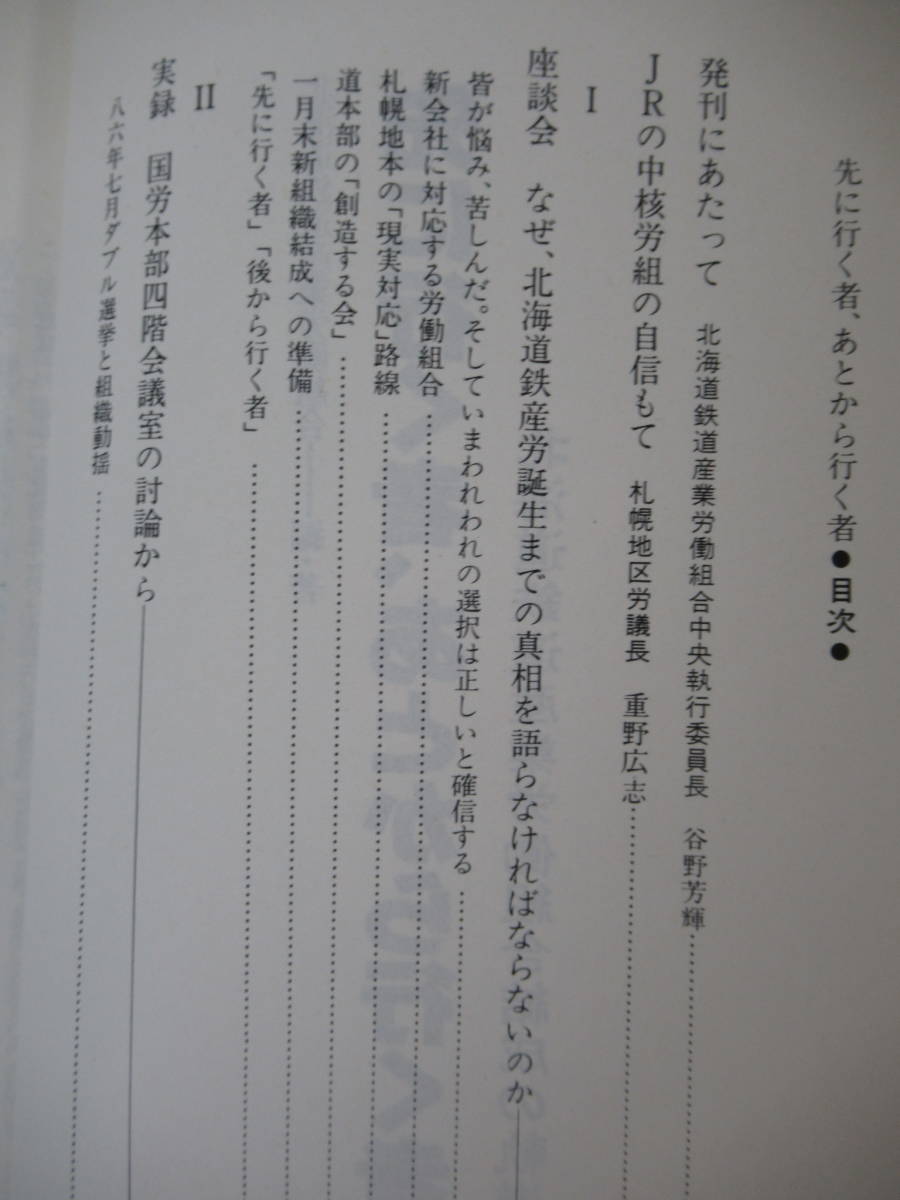 先に行く者、あとから行く者●目次●
発刊にあたって　北海道鉄道産業労働組合中央執行委員長　谷野芳輝
JRの中核労組の自信もて　札幌地区労議長　重野広志
I
座談会　なぜ、北海道鉄産労誕生までの真相を語らなければならないのか
皆が悩み、苦しんだ。そしていまわれわれの選択は正しいと確信する
新会社に対応する労働組合
札幌地本の「現実対応」路線
道本部の「創造する会」
一月末新組織結成への準備
「先に行く者」「後から行く者」
II
実録　国労本部四階会議室の討論から
八六年七月ダブル選挙と組織動揺